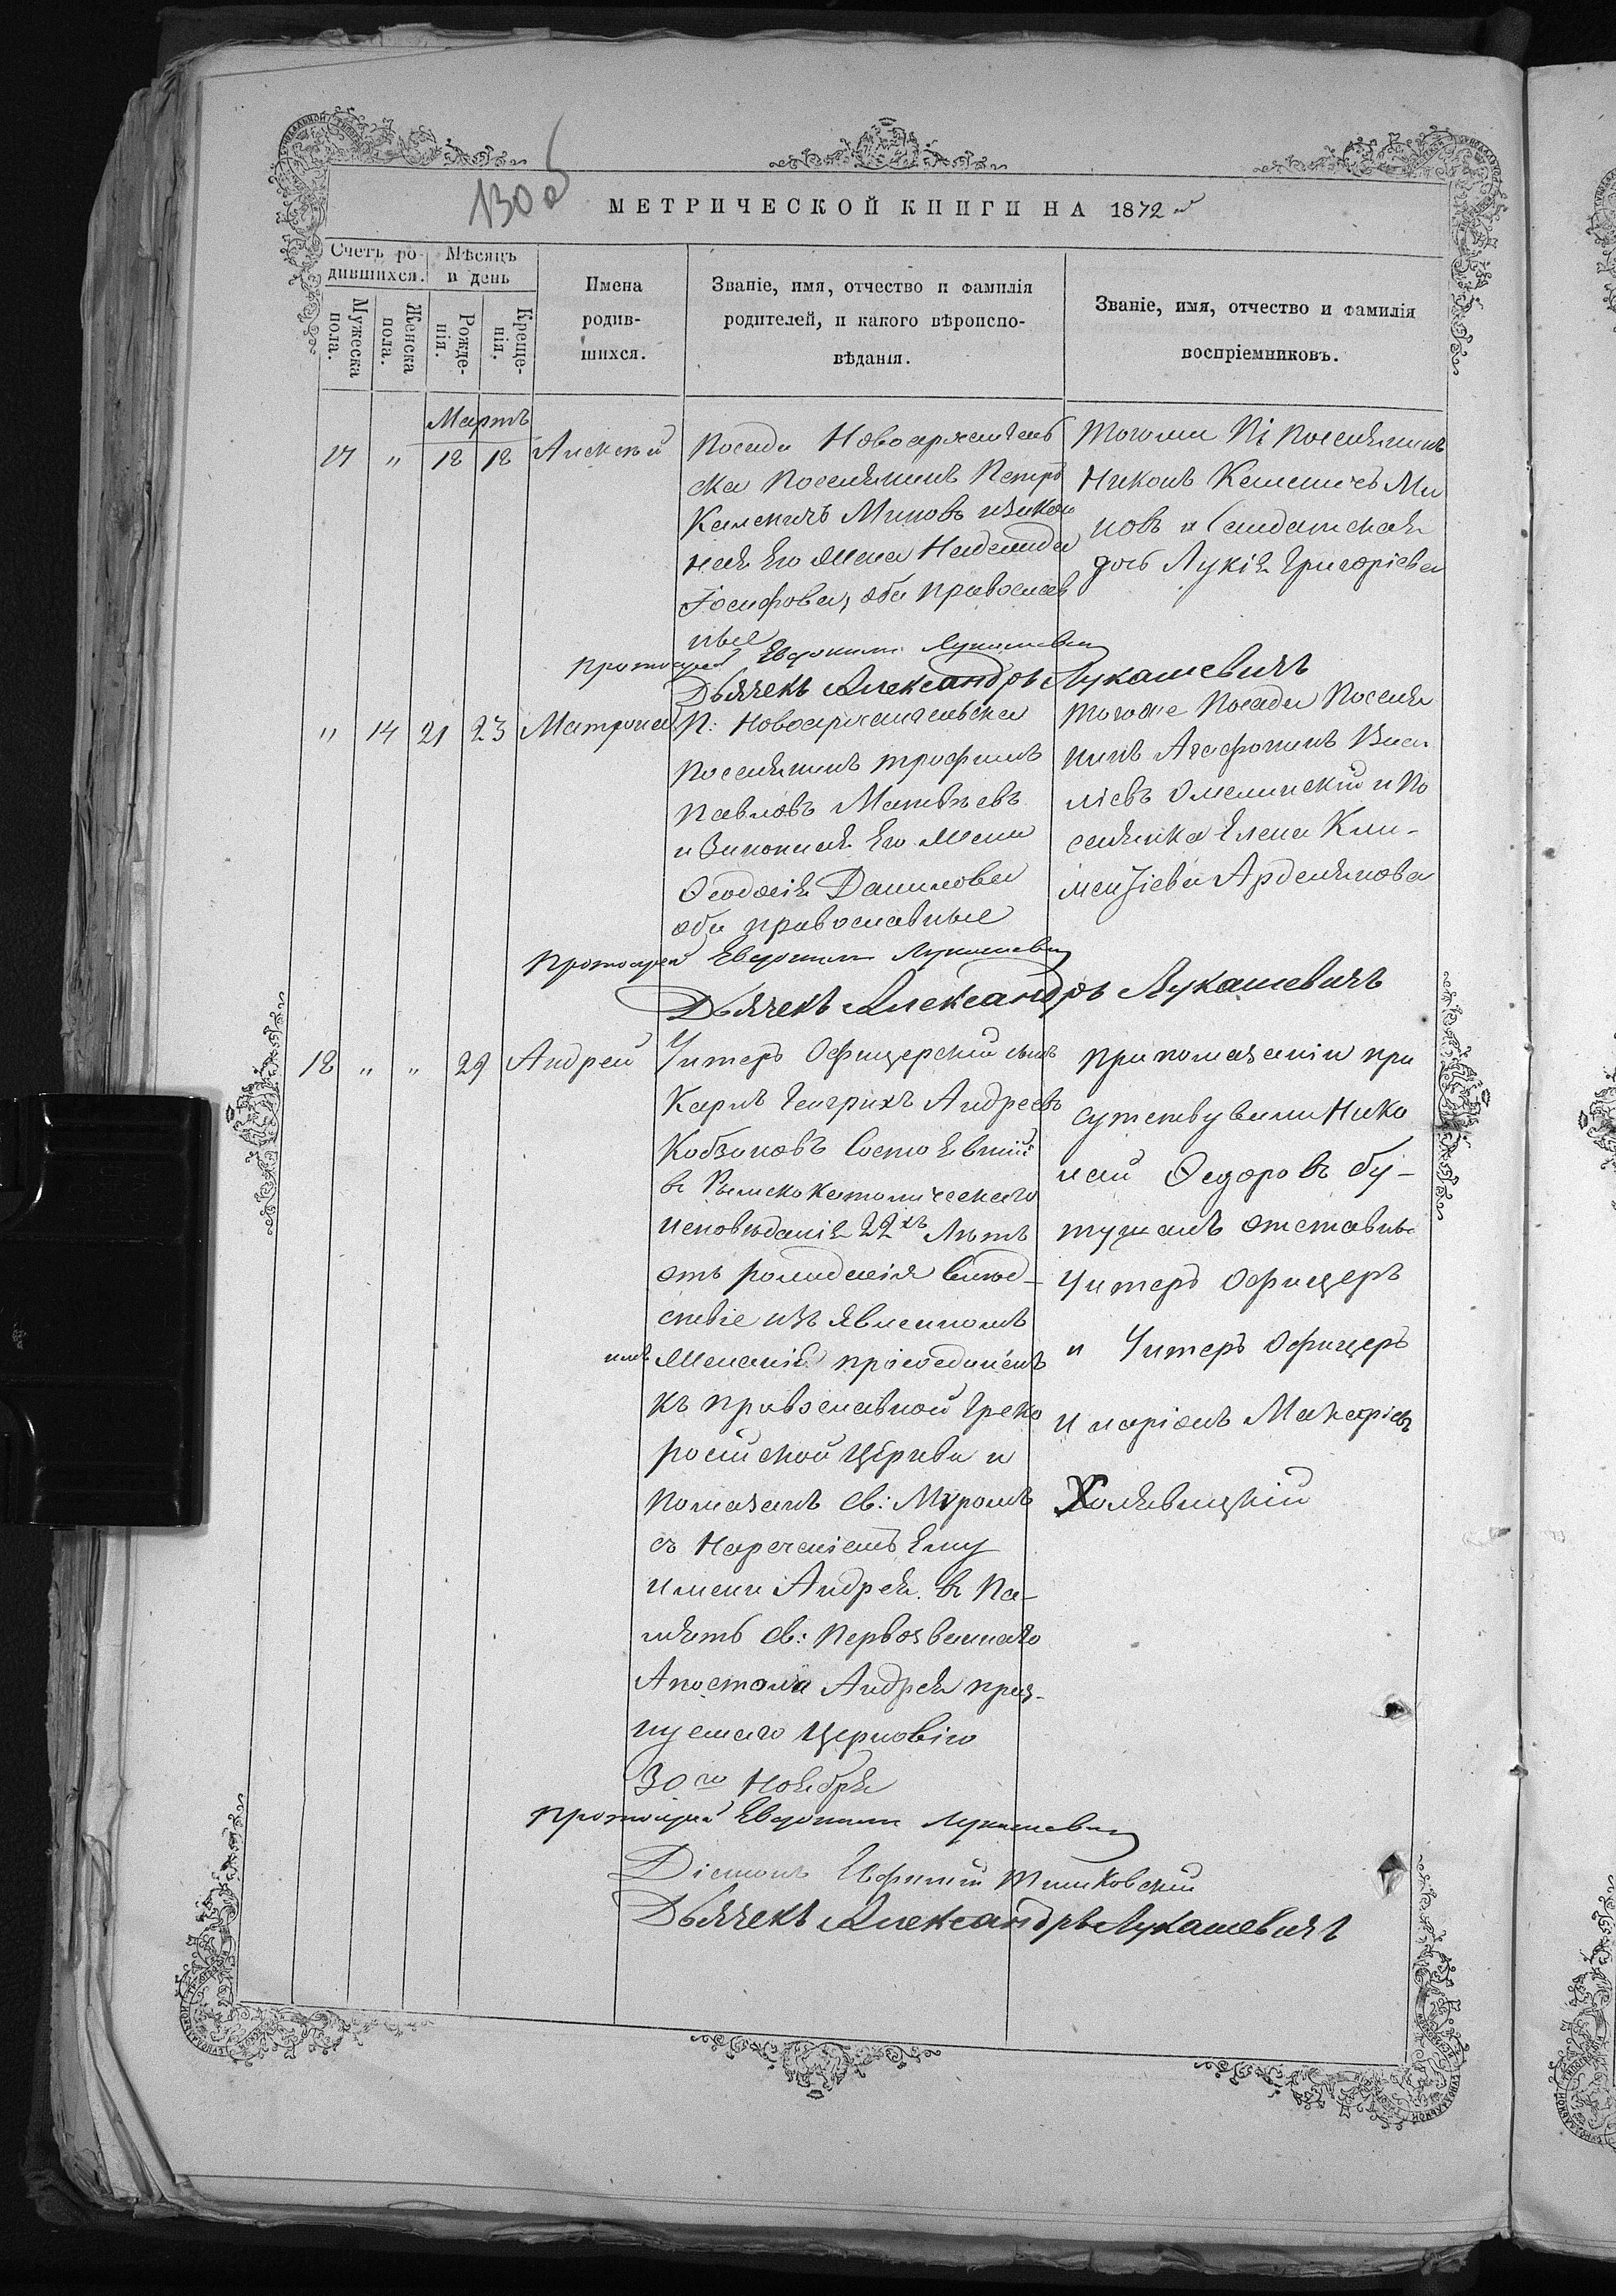 130 об
МЕТРИЧЕСКОЙ КНИГИ НА 1872 й
Счетъ ро-
дившихся.
Мѣсяцъ
и день
Мужеска пола.
Женска пола.
Рожде-
нія.
Креще-
нія.
Имена
родив-
шихся.
Званіе, имя, отчество и фамилія
родителей, и какого вѣроиспо-
вѣданія.
Званіе, имя, отчество и фамилія
воспріемниковъ.
Мартъ
17 " 18 18 Алексѣй
Посада Новоархангель
ска Поселянинъ Петръ
Миновъ и Закон
ная Его Жена Надежда
Іосифова, оба Православ
ные
Тогоже П: Поселянинъ
Никонъ Ми
новъ и Солдатская
дочь Лукія Григоріева
Протоіерей Евдокимъ Лукашевичъ
Дьячекъ Александръ Лукашевичъ
" 14 21 23 Матрона
П: Новоархангельска
Поселянинъ Трофимъ
Павловъ Матвѣевъ
и Законная Его Жена
Ѳеодосія Данилова
оба православные
Тогоже Посада Поселя
нинъ Агафонинъ Васи
ліевъ Омелинскій и По
селянка Елена Кли-
ментіева Арделянова
Протоіерей Евдокимъ Лукашевичъ
Дьячекъ Александръ Лукашевичъ
18 " " 29 Андрей
Унтеръ Офицерскій сынъ
Карлъ Генрихъ Андреевъ
Кобзановъ Состоявшій
в Римскокатолическаго
исповѣданія 22хъ Лѣтъ
отъ рожденія вслѣд-
ствіе изъявленномъ
имъ Желанія присоединенъ
къ православной Греко
россійской Церкви и
помазанъ Св: Мvромъ
съ Нареченіемъ Ему
имени Андрея. в Па-
мять Св: Первозваннаго
Апостола Андрея праз-
нуемаго Церковію
30го Ноября
При помазаніи при
сутствували Нико
лай Ѳедоровъ Бу-
отставны
Унтеръ Офицеръ
и Унтеръ Офицеръ
Иларіонъ Макаріевъ
Холявицкій
Протоіерей Евдокимъ Лукашевичъ
Діаконъ Ефимій
Дьячекъ Александръ Лукашевичъ